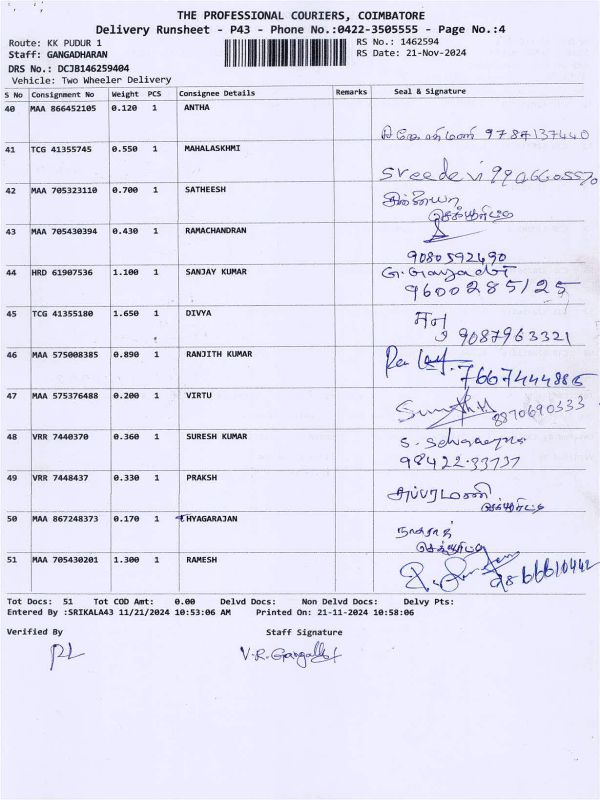 THE PROFESSIONAL COURIERS, COIMBATORE
Delivery Runsheet - P43 - Phone No.:0422-3505555 - Page No.:4
Route: KK PUDUR 1
RS No.: 1462594
Staff: GANGADHARAN
RS Date: 21-Nov-2024
DRS No.: DCJB146259404
Vehicle: Two Wheeler Delivery
S No Consignment No Weight PCS Consignee Details Remarks Seal & Signature
40 MAA 866452105 0.120 1 ANTHA
9787137440
41 TCG 41355745 0.550 1 MAHALASKHMI
Sreedevi
42 MAA 705323110 0.700 1 SATHEESH
செக்யூரிட்டி
43 MAA 705430394 0.430 1 RAMACHANDRAN
9080592490
44 HRD 61907536 1.100 1 SANJAY KUMAR
9600285125
45 TCG 41355180 1.650 1 DIVYA
9087963321
46 MAA 575008385 0.890 1 RANJITH KUMAR
47 MAA 575376488 0.200 1 VIRTU
8870690333
48 VRR 7440370 0.360 1 SURESH KUMAR
98422-33737
49 VRR 7448437 0.330 1 PRAKSH
செக்யூரிட்டி
50 MAA 867248373 0.170 1 THYAGARAJAN
செக்யூரிட்டி
51 MAA 705430201 1.300 1 RAMESH
Tot Docs: 51 Tot COD Amt: 0.00 Delvd Docs: Non Delvd Docs: Delvy Pts:
Entered By :SRIKALA43 11/21/2024 10:53:06 AM Printed On: 21-11-2024 10:58:06
Verified By Staff Signature